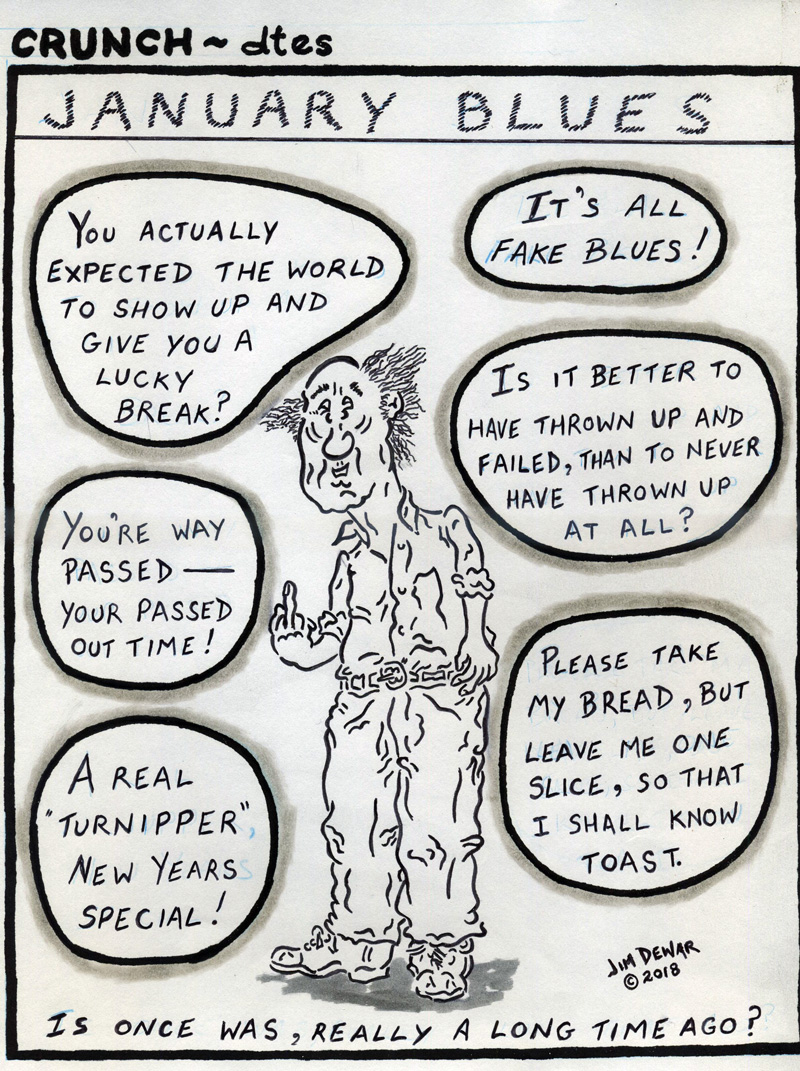 CRUNCH ~ dtes
JANUARY BLUES
YOU ACTUALLY
EXPECTED THE WORLD
TO SHOW UP AND
GIVE YOU A
LUCKY
BREAK?
IT'S ALL
FAKE BLUES!
IS IT BETTER TO
HAVE THROWN UP AND
FAILED, THAN TO NEVER
HAVE THROWN UP
AT ALL?
YOU'RE WAY
PASSED —
YOUR PASSED
OUT TIME!
PLEASE TAKE
MY BREAD, BUT
LEAVE ME ONE
SLICE, SO THAT
I SHALL KNOW
TOAST.
A REAL
"TURNIPPER",
NEW YEARS
SPECIAL!
JIM DEWAR
© 2018
IS ONCE WAS, REALLY A LONG TIME AGO?